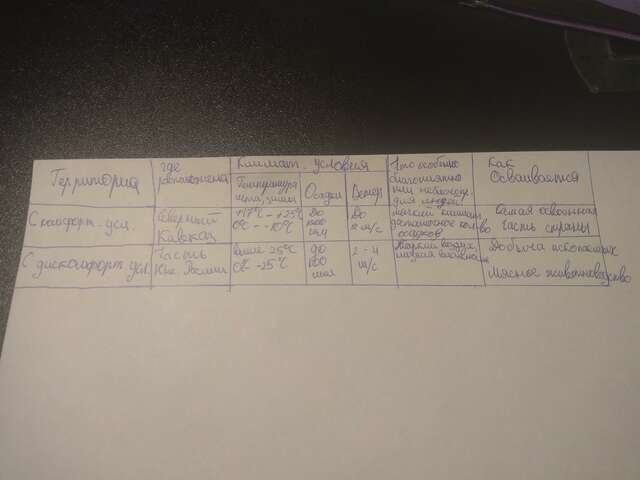 Территория
где
расположена
Климат. условия
Температура
лета, зимы
Осадки
Ветер
Что особенно
благоприятно
или неблагопр.
для людей
Как
Осваивается
С комфорт. усл.
Северный
Кавказ
+17°C - +25°C
0°C - -10°C
До
мм
До
м/с
мягкий климат,
достаточное кол-во
осадков
Самая освоенная
часть страны
С дискомфорт. усл.
Часть
Юга России
выше 25°C
0°C -25°C
до
мм
2-4
м/с
Жаркий воздух,
Добыча ископаемых
Мясное животноводство